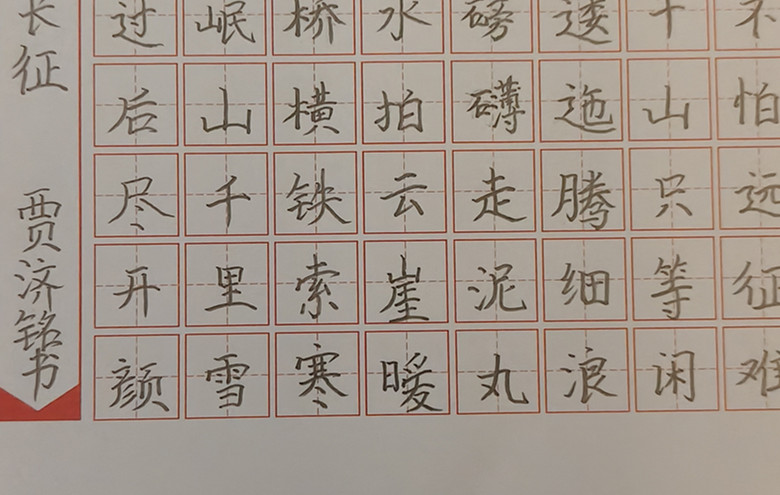 不怕远征难
千山只等闲
逶迤腾细浪
磅礴走泥丸
水拍云崖暖
桥横铁索寒
岷山千里雪
过后尽开颜
长征
贾济铭书